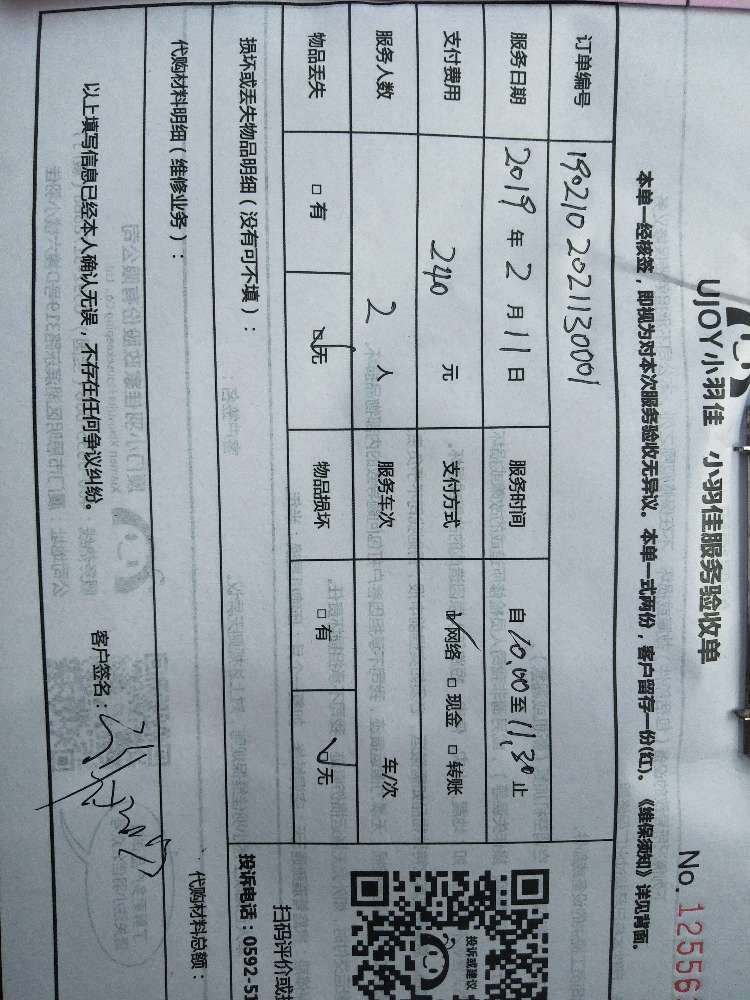 UJOY小羽佳 小羽佳服务验收单
No. 12556
本单一经核签，即视为对本次服务验收无异议。本单一式两份，客户留存一份(红)。《维保须知》详见背面。
订单编号 190210 2021130001
服务日期 2019 年 2 月 11 日 服务时间 自 10:00 至 11:30 止
支付费用 240 元 支付方式 □网络 □现金 □转账
服务人数 2 人 服务车次 车/次
物品丢失 □有 □无 物品损坏 □有 □无
损坏或丢失物品明细（没有可不填）：
代购材料明细（维修业务）：
代购材料总额：
以上填写信息已经本人确认无误，不存在任何争议纠纷。
客户签名：
投诉或建议
扫码评价或投
投诉电话：0592-51